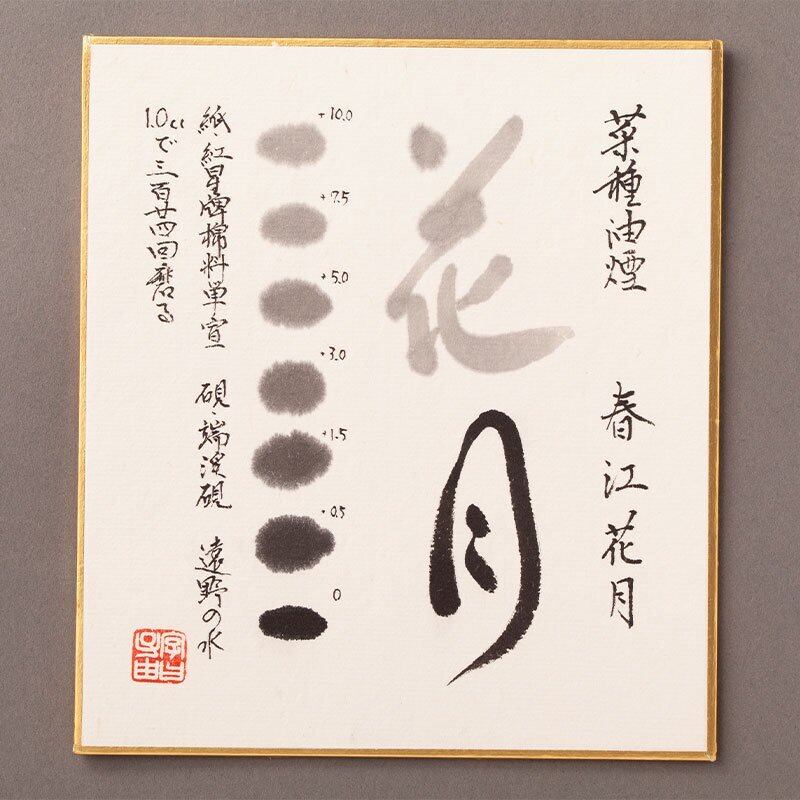 菜種油煙　春江花月
花月
+10.0
+7.5
+5.0
+3.0
+1.5
+0.5
0
紙・紅星牌棉料単宣　硯・端渓硯　遠野の水
1.0ccで三百廿四回磨る